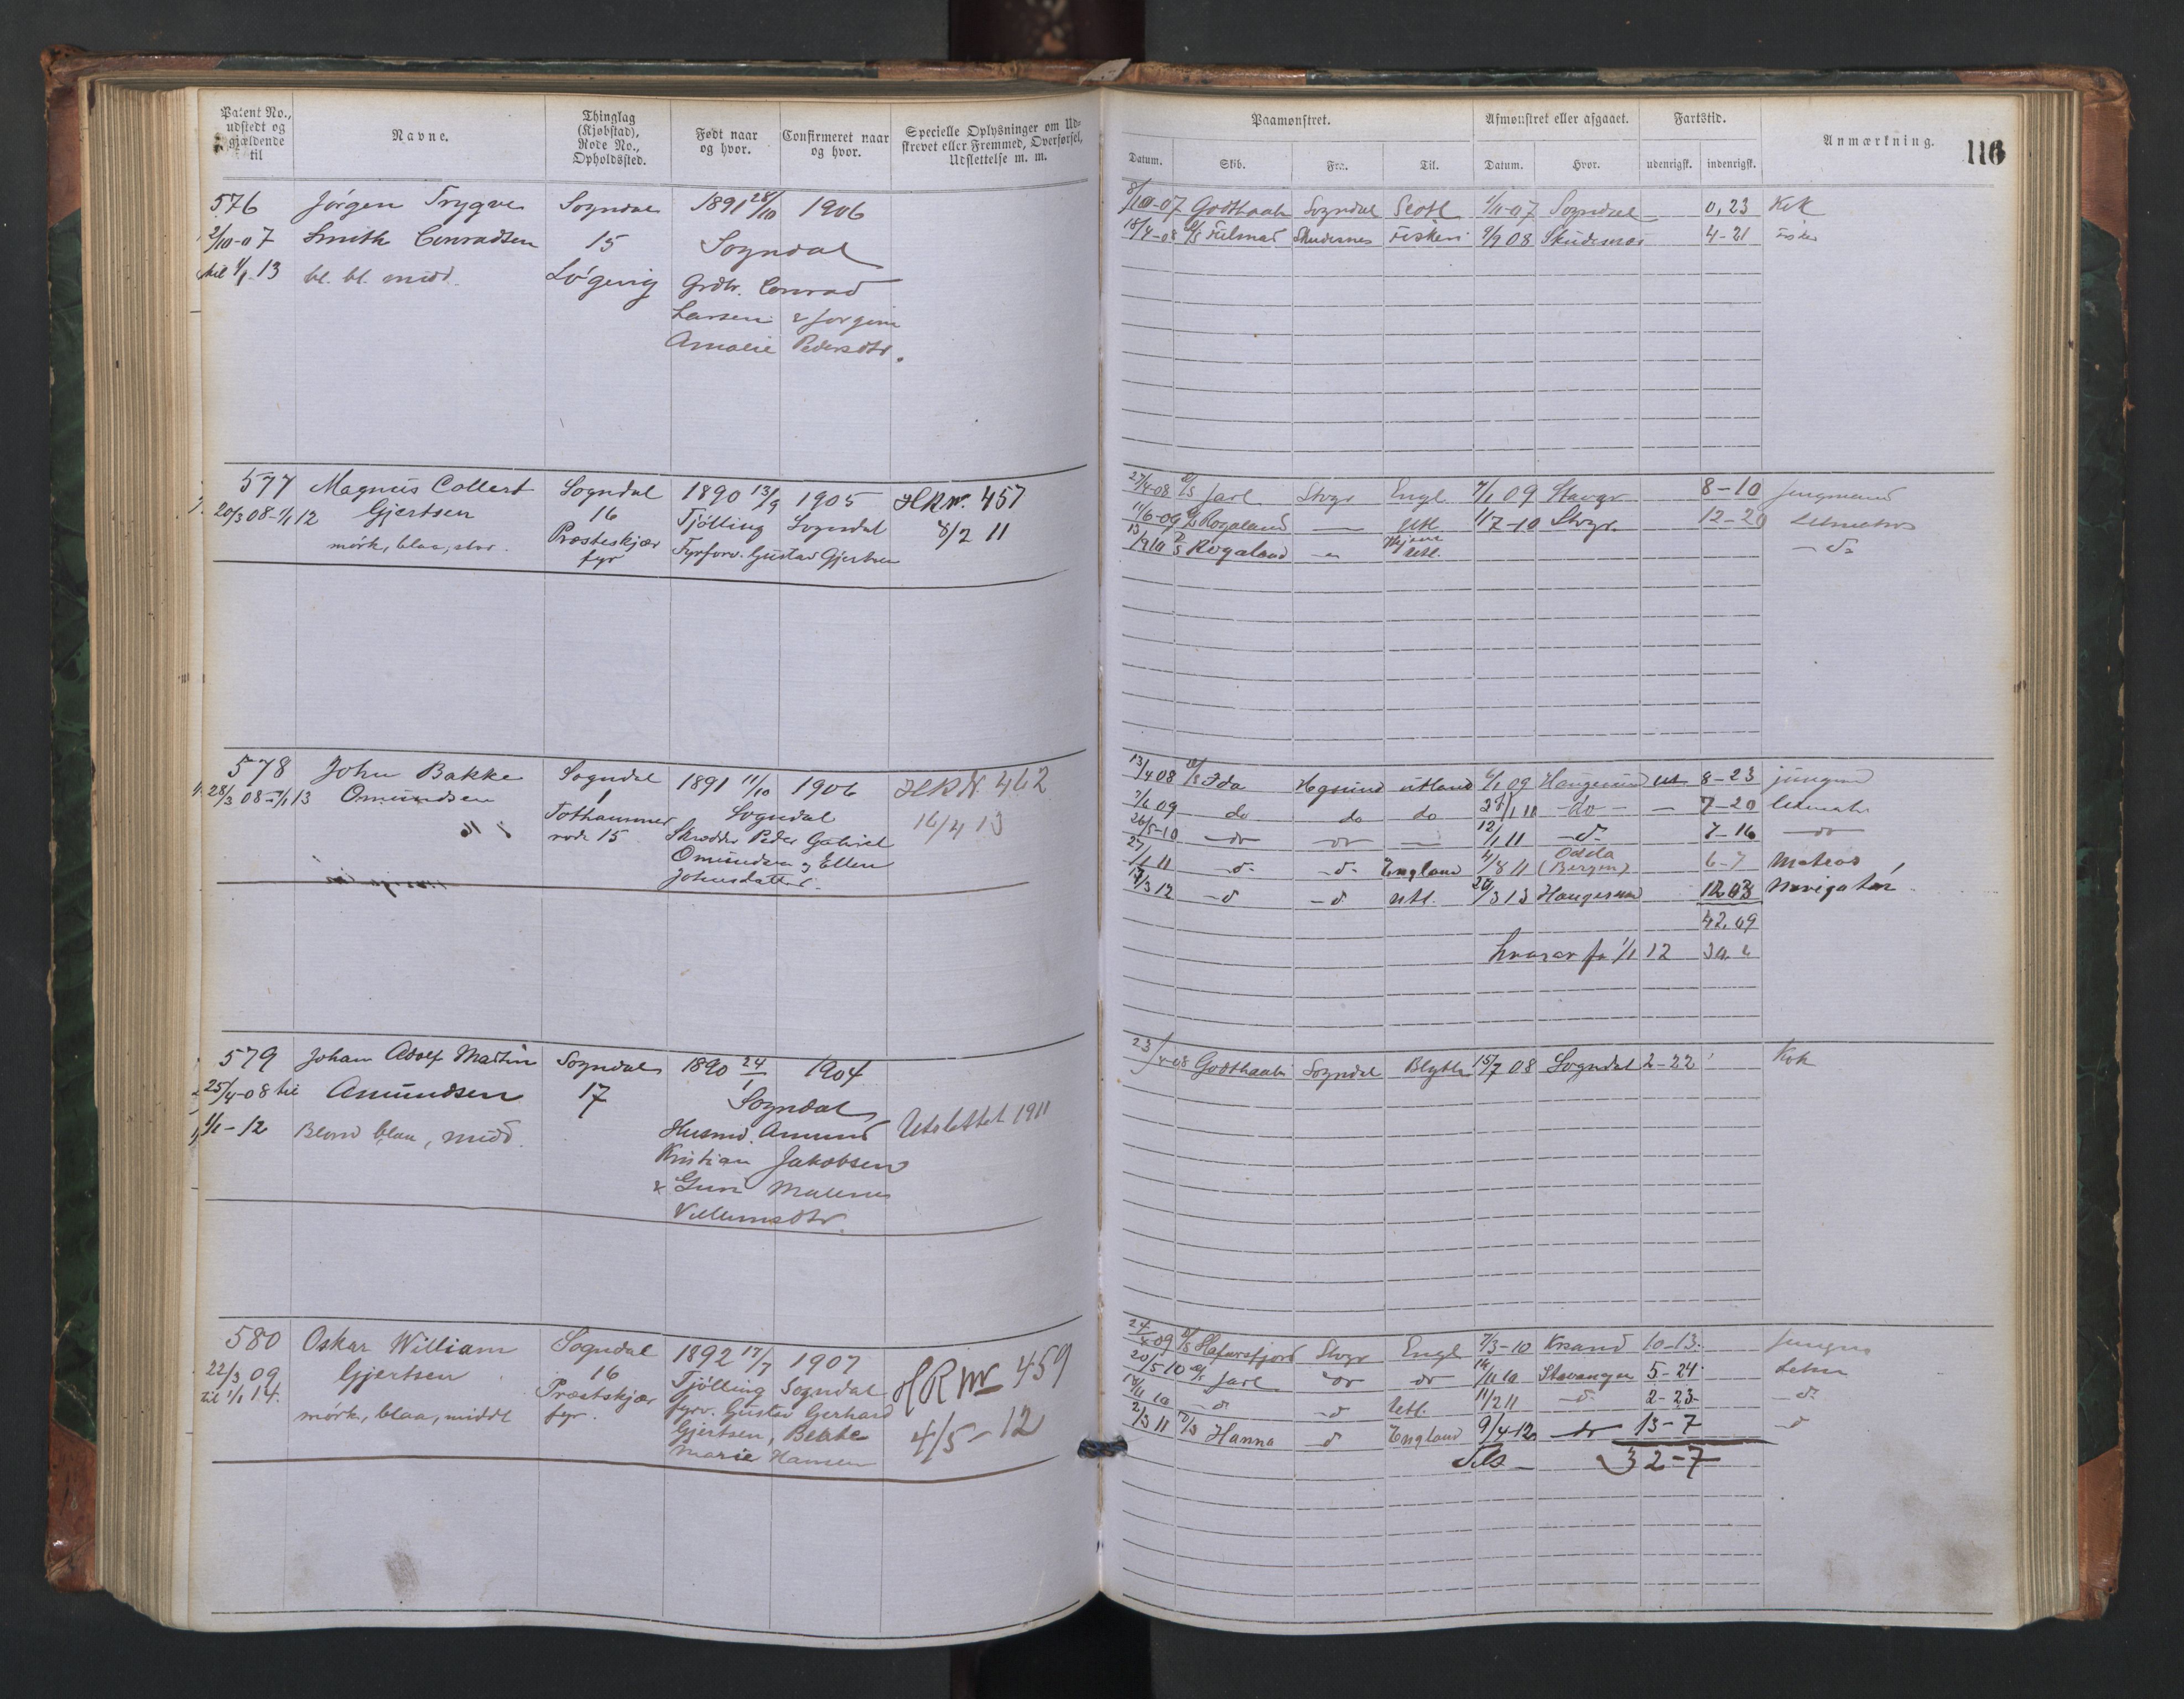 Patent No., udstedt og gjældende til
Navne.
Thinglag (Kjøbstad), Rode No., Opholdssted.
Født naar og hvor.
Confirmeret naar og hvor.
Specielle Oplysninger om Udskrevet eller Fremmed, Overførsel, Udslettelse m. m.
Paamønstret.
Afmønstret eller afgaaet.
Fartstid.
Anmærkning.
116
Datum. Skib. Fra. Til. Datum. Hvor. udenrigsk. indenrigsk.
576 Jørgen Trygve Sogndal 1891 28/10 1906
2/10-07 Smith Conradsen 15 Sogndal
til 1/1 13 bl. bl. midd. Løgevig Grdbr. Conrad
Larsen & Jorgine
Amalie Pedersdtr.
8/10-07 Godthaab Sogndal Scotl 1/11-07 Sogndal 0,23 Kok
18/4-08 Skudesnes Fiskeri 9/9 08 Skudesnes 4-21 Fisker
577 Magnus Collert Sogndal 1890 13/9 1905 HRNr. 457
20/3 08-1/1 12 Gjertsen 16 Tjølling Sogndal 8/2 11
mørk, blaa, stor. Præsteskjær Fyrforv. Gustav Gjertsen
fyr
27/4-08 D/S Jarl Stvgr Engl. 7/1 09 Stavgr 8-10 Jungmand
11/6-09 Rogaland — Utl 1/7-10 Stvgr. 12-20 Letmatros
D/S Rogaland Utl. do
578 John Bakke Sogndal 1891 11/10 1906 HRNr 462
28/3 08-1/1 13 Omundsen 1 Sogndal 16/4 13
Tothammer
rode 15 Skrædder Peder Gabriel
Omundsen og Ellen
Johnsdatter.
13/4 08 D/S Ida Hgsund utland 6/1 09 Haugesund ut 8-23 jungmd
7/6 09 do do do 27/1 10 -do- 7-20 letmatr
26/5-10 -do- -do- — 12/1 11 -d- 7-16 -do-
27/1 11 -d- -d- England 4/8 11 Odda (Bergen) 6-7 Matros
14/3 12 -d -d utl. 29/3 13 Haugesund 12 03 Navigatør
42.09
hvorav fr 1/1 12 30.
579 Johan Adolf Martin Sogndal 1890 24/1 1904
25/4-08 til Amundsen 17 Sogndal
1/1-12 Blond blaa, midd. Husmd. Amund Utslettet 1911
Kristian Jakobsen
& Guri Malene
Villumsdtr.
23/4-08 Godthaab Sogndal Blyth 15/7 08 Sogndal 2-22 Kok
580 Oskar William Sogndal 1892 17/7 1907 HRNr 459
22/3 09 Gjertsen 16 Tjølling Sogndal 4/5-12
til 1/1 14. mørk, blaa, middl Præstskjær fyr. fyrv. Gustav Gerhard
Gjertsen, Beate
Marie Hansen
24/4 09 D/S Hafursfjord Stvgr Engl 7/3-10 Krsand 10-13. Jungm
20/5 10 D/S Jarl do do Stavanger 5-24 Letm
-d -d Utl. 11/2 11 -d- 2-23- -d-
2/3 11 D/S Hanna -d England 9/4-12 do 13-7 -d
Tils — 32-7